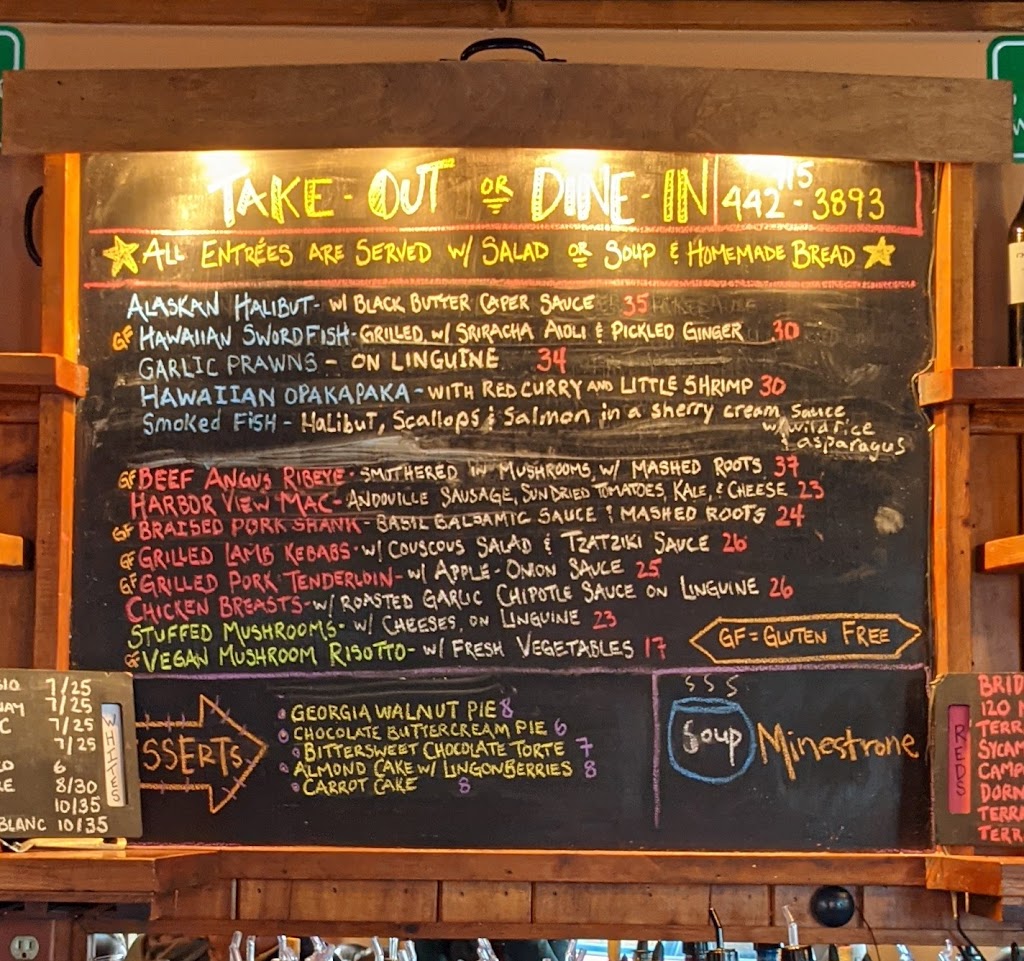 TAKE-OUT OR DINE-IN 715 442-3893
ALL ENTRÉES ARE SERVED W/ SALAD OR SOUP & HOMEMADE BREAD
ALASKAN HALIBUT- W/ BLACK BUTTER CAPER SAUCE 35
GF HAWAIIAN SWORDFISH- GRILLED W/ SRIRACHA AIOLI & PICKLED GINGER 30
GARLIC PRAWNS - ON LINGUINE 34
HAWAIIAN OPAKAPAKA - WITH RED CURRY AND LITTLE SHRIMP 30
Smoked FISH - Halibut, Scallops & Salmon in a sherry cream sauce
w/ wild rice
& asparagus
GF BEEF ANGUS RIBEYE- SMOTHERED IN MUSHROOMS, W/ MASHED ROOTS 37
HARBOR VIEW MAC- ANDOVILLE SAUSAGE, SUNDRIED TOMATOES, KALE, & CHEESE 23
GF BRAISED PORK SHANK- BASIL BALSAMIC SAUCE & MASHED ROOTS 24
GF GRILLED LAMB KEBABS- W/ COUSCOUS SALAD & TZATZIKI SAUCE 26
GF GRILLED PORK TENDERLOIN- W/ APPLE-ONION SAUCE 25
CHICKEN BREASTS- W/ ROASTED GARLIC CHIPOTLE SAUCE ON LINGUINE 26
STUFFED MUSHROOMS- W/ CHEESES, ON LINGUINE 23
GF VEGAN MUSHROOM RISOTTO- W/ FRESH VEGETABLES 17
GF = GLUTEN FREE
SSERTS
GEORGIA WALNUT PIE 8
CHOCOLATE BUTTERCREAM PIE 6
BITTERSWEET CHOCOLATE TORTE 7
ALMOND CAKE W/ LINGONBERRIES 8
CARROT CAKE 8
Soup Minestrone
7/25
7/25
7/25
7/25
6
8/30
10/35
BLANC 10/35
WHITES
REDS
BRID
120
TERR
SYCAM
CAMP
DORN
TERR
TERR